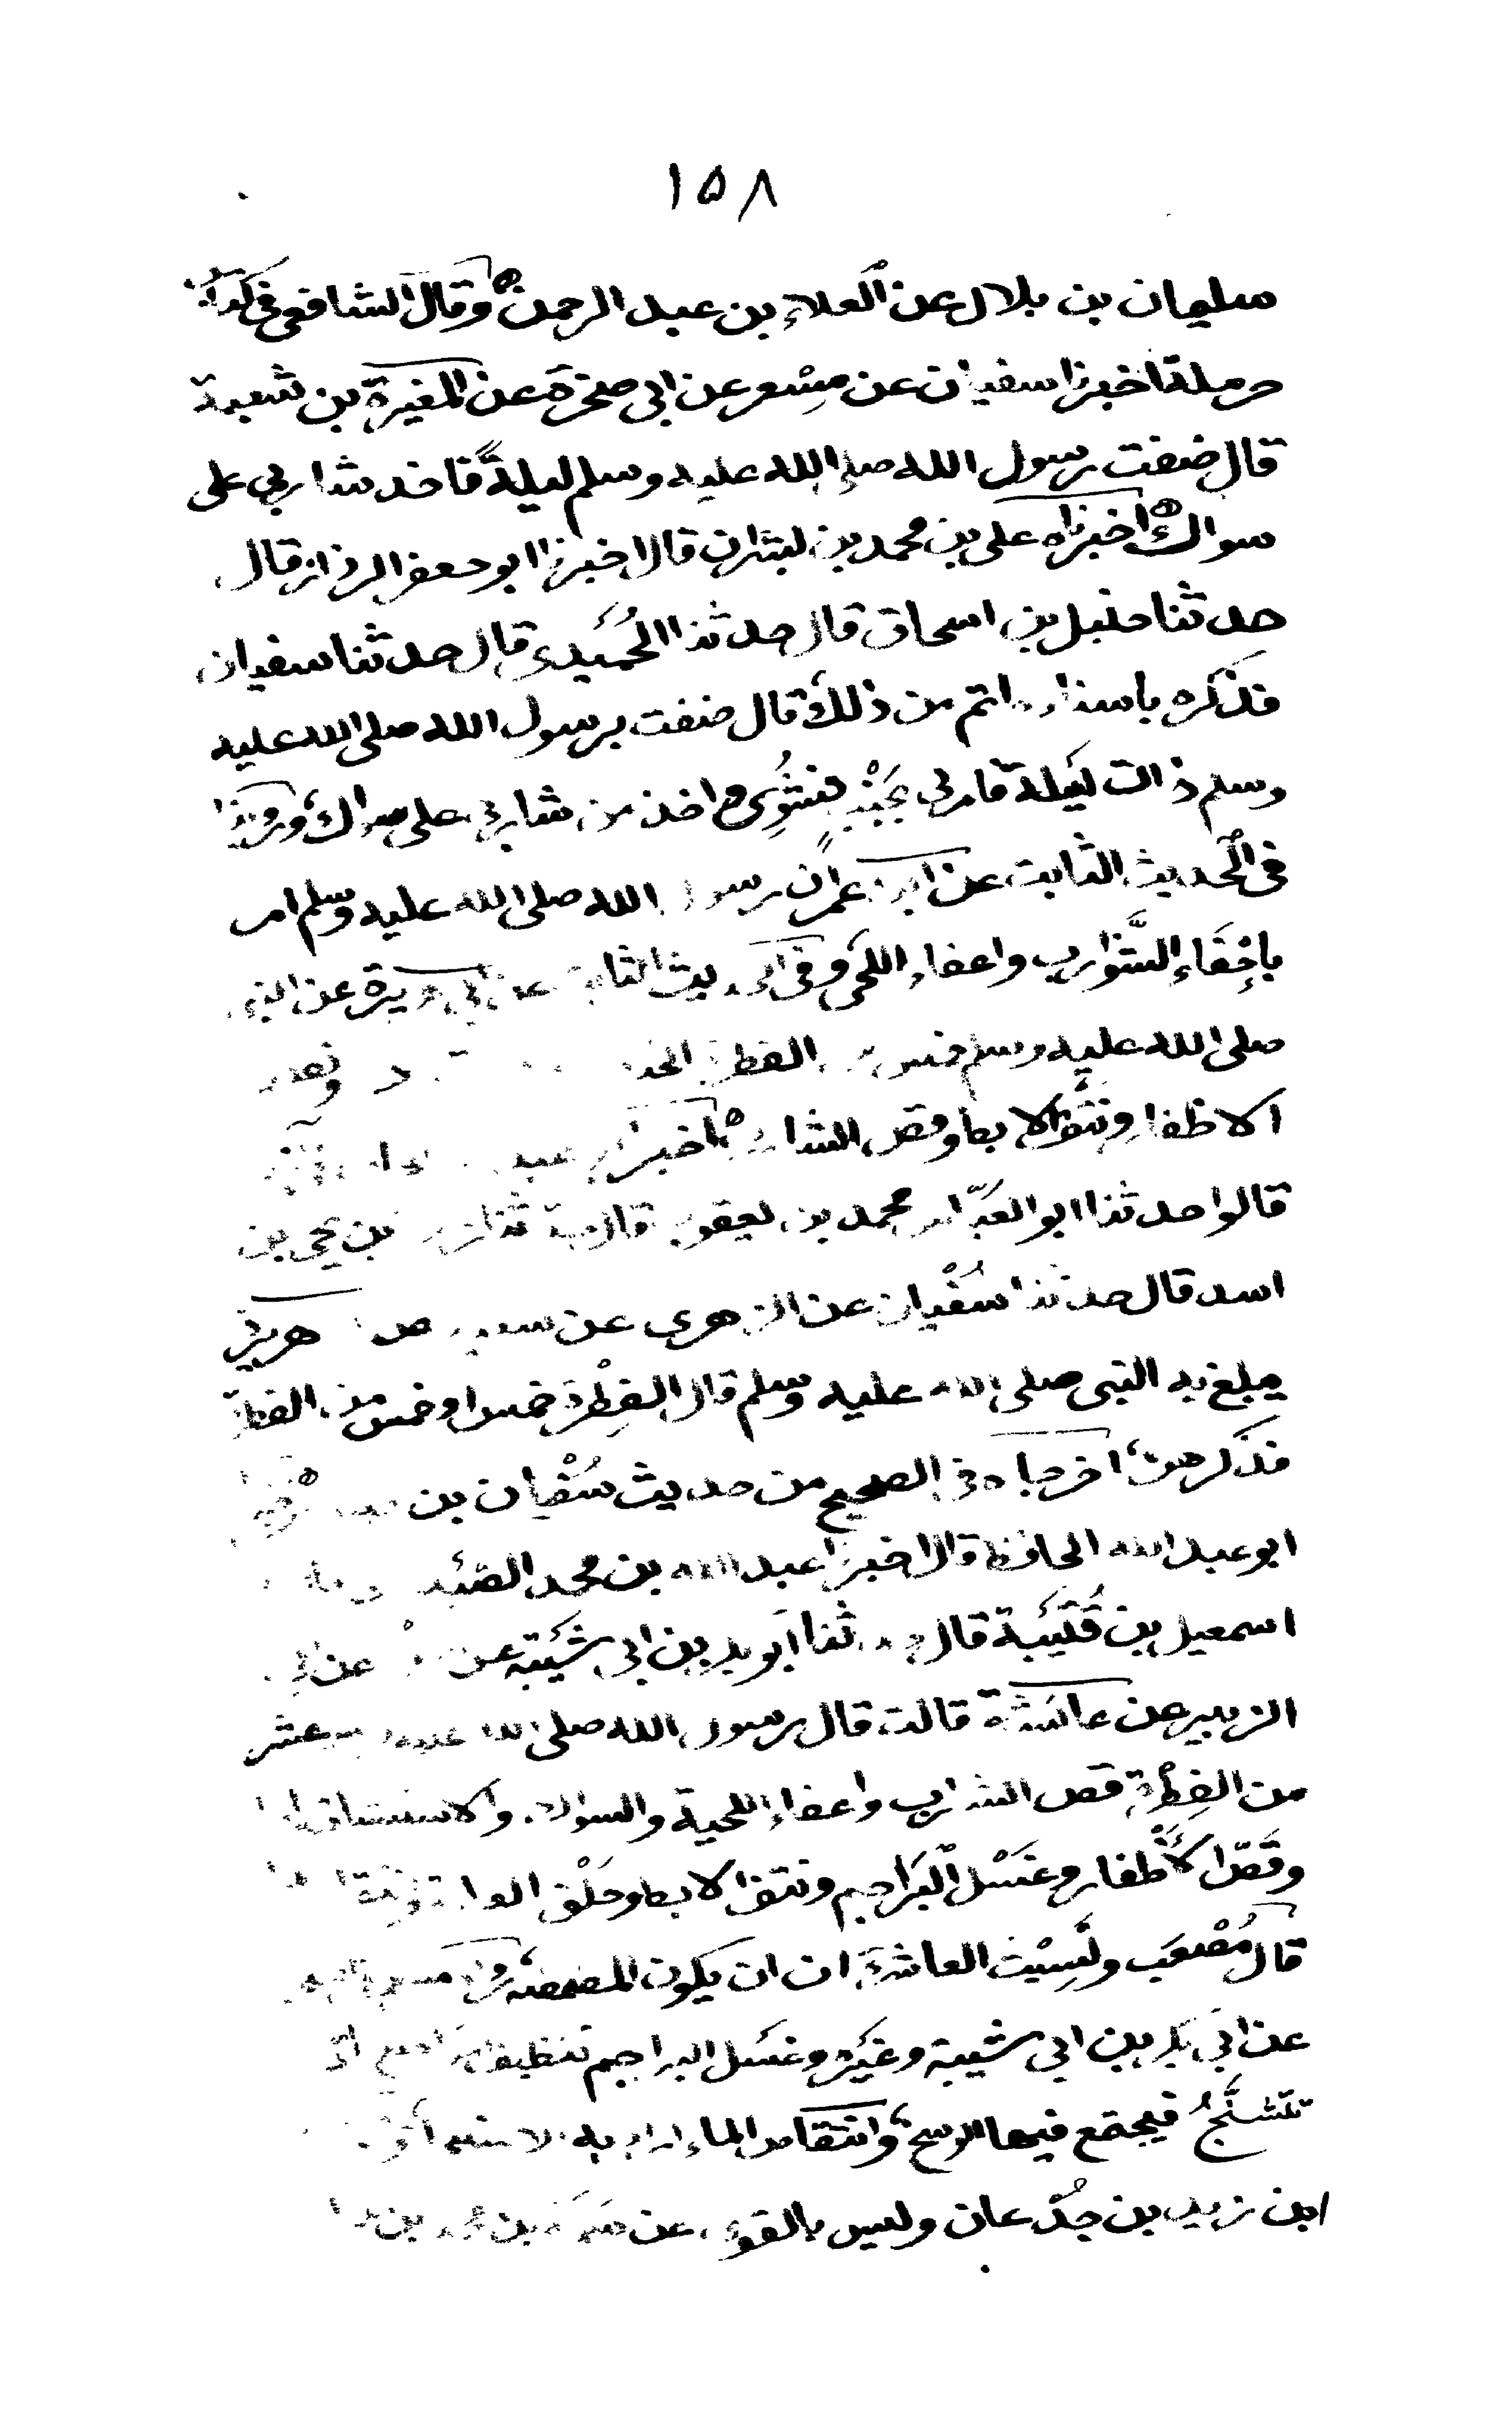 ١٥٨
سليمان بن بلال عن العلاء بن عبد الرحمن وقال الشافعي في كتاب
حرملة اخبرنا سفيان عن مِسْعر عن ابي صخرة عن المغيرة بن شعبة
قال ضفت رسول الله صلى الله عليه وسلم ليلةً فاخذ شاربي على
سواك اخبرناه علي بن محمد بن بشران قال اخبرنا ابو جعفر الرزاز قال
حدثنا حنبل بن اسحاق قال حدثنا الحُمَيدي قال حدثنا سفيان
فذكره باسناده اتم من ذلك قال ضفت برسول الله صلى الله عليه
وسلم ذات لَيلة فامر لي بجَنْبٍ فشُوِي واخذ من شاربي على سواك وروينا
في الحديث الثابت عن ابن عمر ان رسول الله صلى الله عليه وسلم امر
بإحْفَاءِ الشَّوارب واعفاء اللحى وفي الحديث الثابت عن ابي هريرة عن النبي
صلى الله عليه وسلم خمس من الفطرة
الاظفار ونتف الابط وقص الشارب اخبرنا
قالوا حدثنا ابو العبّاس محمد بن يعقوب قال حدثنا بن يحيى بن
اسد قال حدثنا سُفْيان عن الزهري عن سعيد هريرة
يبلغ به النبي صلى الله عليه وسلم قال الفِطْرة خمس او خمس من الفطرة
فذكرهن اخرجاه في الصحيح من حديث سُفْيان بن
ابو عبد الله الحافظ قال اخبرنا عبد الله بن محمد
اسمعيل بن قُتَيْبَة قال حدثنا أبو بكر بن ابي شَيْبَة عن
الزبير عن عائشة قالت قال رسول الله صلى الله عليه عشر
من الفِطْرة قص الشارب واعفاء اللحية والسواك والاستنشاق
وقَصّ الأَظفار وغَسْل البَراجم ونتف الابط وحَلْق العانة
قال مُصْعَب ونَسِيْت العاشرة ان ان يكون المضمضة
عن ابي بكر بن ابي شيبة وغَيْره وغَسْل البراجم تنظيف
تتشنَّجُ فيجتمع فيها الوسخ وانتقاص الماء
ابن زيد بن جُدْعان وليس بالقوي عن